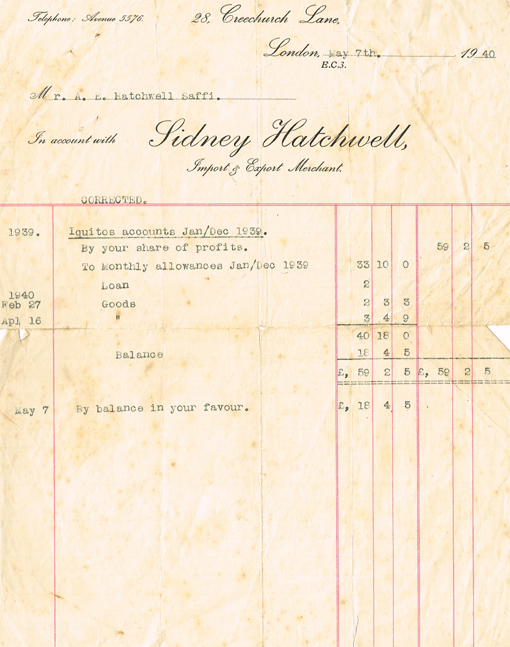 Telephone: Avenue 5576.
28, Creechurch Lane,
London, May 7th. 1940
E.C.3.
Mr. A. E. Hatchwell Saffi.
In account with Sidney Hatchwell,
Import & Export Merchant.
CORRECTED.
1939. Iquitos accounts Jan/Dec 1939.
By your share of profits. 59 2 5
To Monthly allowances Jan/Dec 1939 33 10 0
Loan 2
1940
Feb 27 Goods 2 3 3
Apl 16 " 3 4 9
40 18 0
Balance 18 4 5
£, 59 2 5 £, 59 2 5
May 7 By balance in your favour. £, 18 4 5